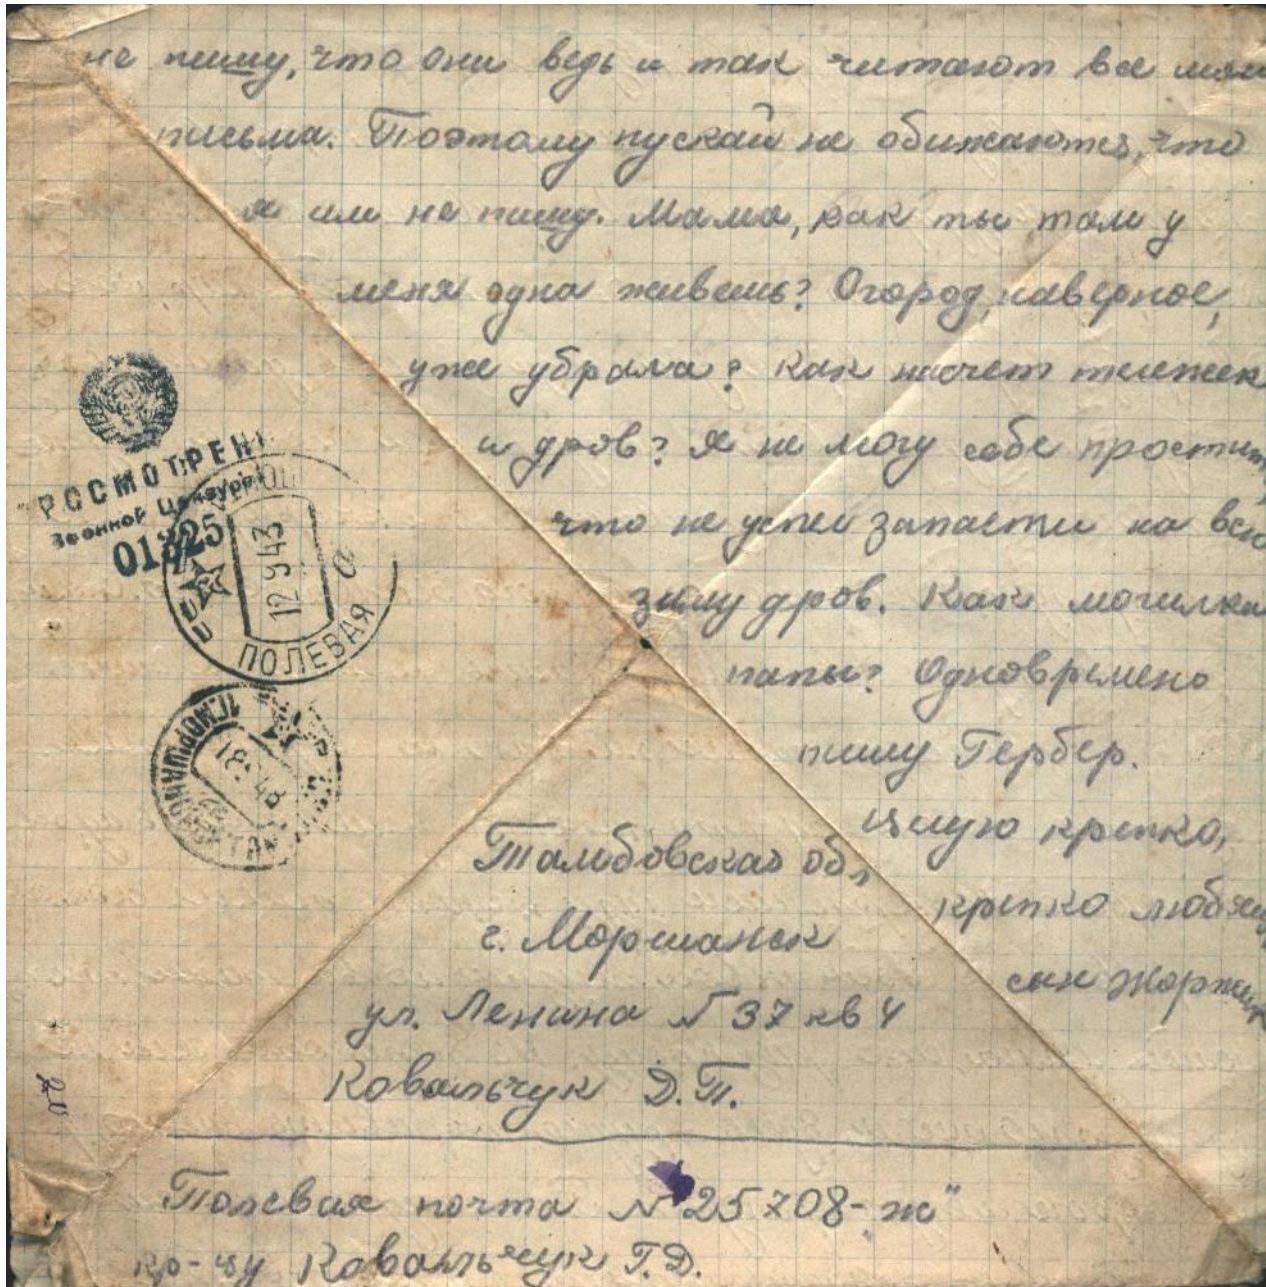 не пишу, что они ведь и так читают все мои
письма. Поэтому пускай не обижаются, что
я им не пишу. Мама, как ты там у
меня одна живешь? Огород, наверное,
уже убрала? Как насчет тележек
и дров? Я не могу себе простить,
что не успел запасти на всю
зиму дров. Как могилка
папы? Одновремено
пишу Гербер.
Целую крепко,
крепко любящий
сын Жоржик
РОСМОТРЕН
Военной Цензурой
01825
12 9 43
ПОЛЕВАЯ
МОРШАНСК
Тамбовская обл
г. Моршанск
ул. Ленина N 37 кв 4
Ковальчук Д.П.
20
Полевая почта N 25708-"ж"
кр-цу Ковальчук Г.Д.